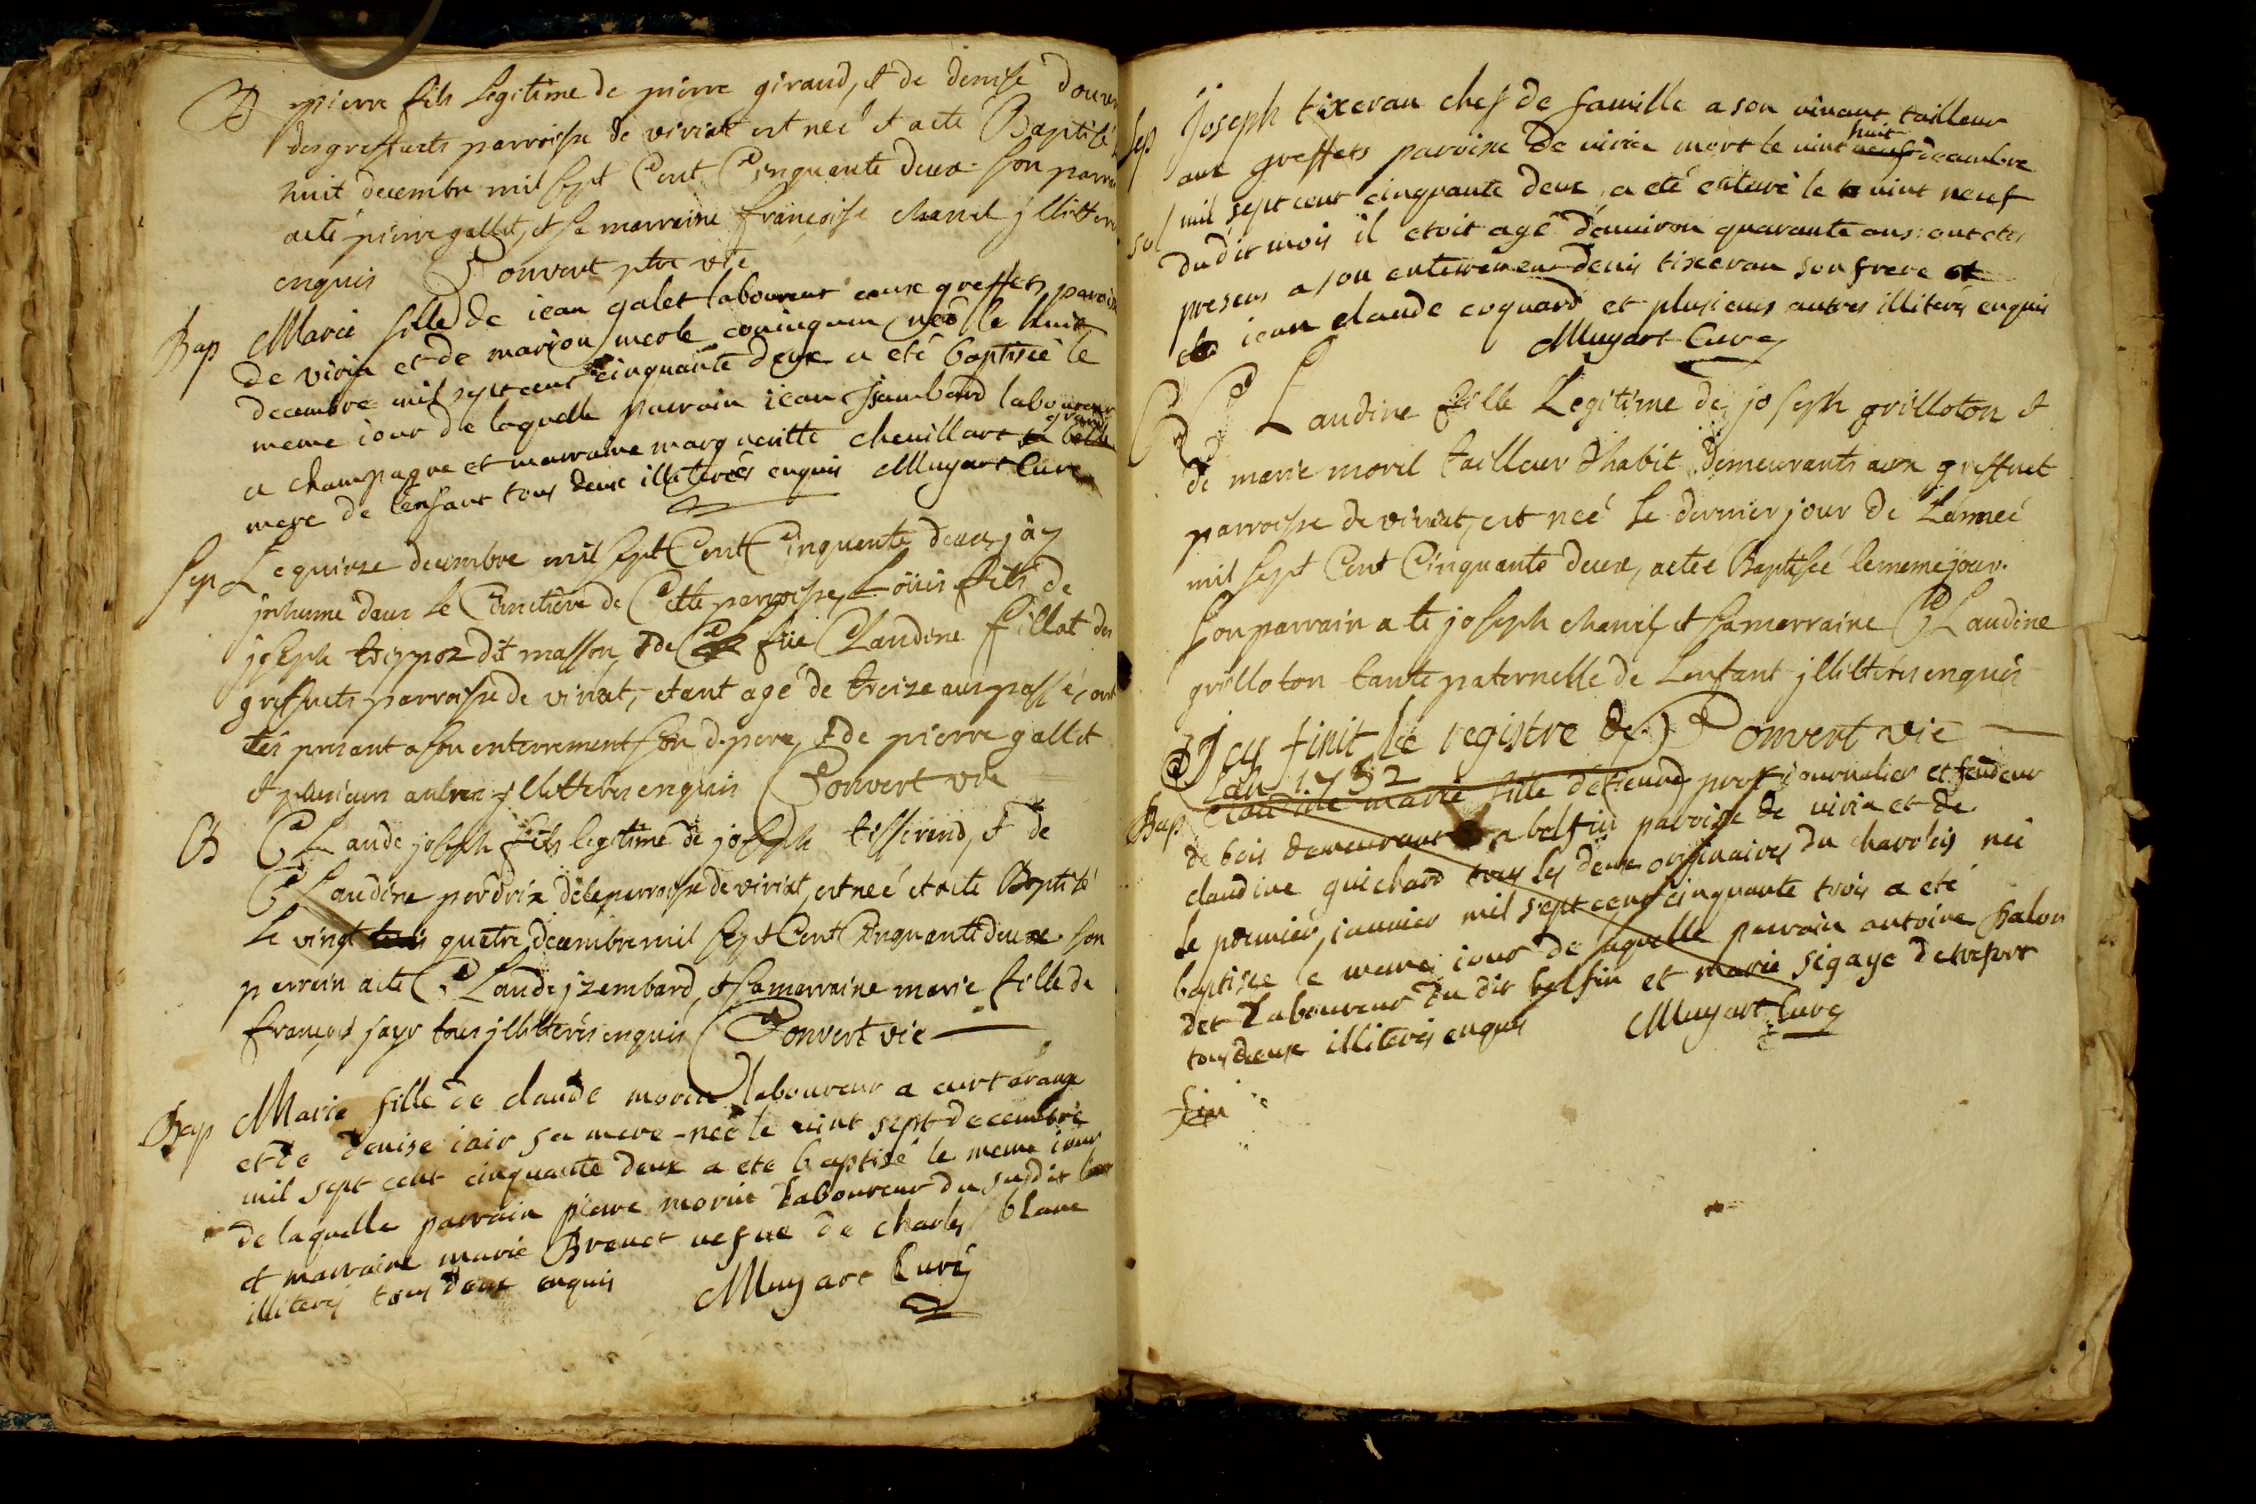 B pierre fils Legitime de pierre giraud, et de denise
des greffuets parroisse de viriat est neé et a eté Baptisé
huit decembre mil sept Cent Cinquante deux son
a eté pierre gallet, et sa marraine françoise chanel jllitter
enquis Convert ptre vie
Bap Marie fille de iean galet laboureur aux greffets paroi
de viria et de marion merle nee le huit
decembre mil sept cent cinquante deux a eté baptisée le
meme iour de laquelle parrain iean isambard laboureur
a champagne et marraine margueritte chevillart grand
mere de l'enfant tous deux illiterés enquis Muyart Curé
Sep Le quinze decembre mil sept Cent Cinquante deux, j'ay
jnhumé dans le Cimetiere de Cette parroisse, Loüis fils de
joseph dit masson et de füe Claudine fillat des
greffuets parroisse de viriat, etant agé de treize ans passé, ont
tes present a son enterrement son d. pere, et de pierre gallet
et plusieurs autres jllitterés enquis Convert vie
B CLaude joseph fils legitime de joseph tisserend, et de
CLaudine perdrix de la parroisse de viriat, est neé et a eté Baptisé
le vingt quatre decembre mil sept Cent Cinquante deux son
parrain a eté CLaude jzembard, et sa marraine marie fille de
françois jayr tous jllitterés enquis Convert vie
Bap Marie fille de claude morin laboureur a curtarange
et de denise iair sa mere neé le vint sept decembre
mil sept cent cinquante deux a eté baptisé le meme iour
de laquelle parrain pierre morin laboureur du susdit lieu
et marraine marie Brevet vefve de charle blanc
illiterés tous deux enquis Muyart Curé
Sep joseph tixeran chef de famille a son vivant tailleur
aux greffets paroisse de viria mort le vint huit decembre
mil sept cent cinquante deux, a eté enterré le vint neuf
sol dudit mois il etoit agé d'environ quarante ans: ont etés
presens a son enterrement denis tixeran son frere et
iean claude coquard et plusieurs autres illiterés enquis
Muyart Curé
B CLaudine fille Legitime de joseph grilloton et
de marie morel tailleur d'habit demeurants aux greffuet
parroisse de viriat, est neé le dernier jour de L'anneé
mil sept Cent Cinquante deux, a eté Baptiseé le meme jour.
son parrain a eté joseph chanel et sa marraine CLaudine
grilloton tante paternelle de L'enfant jllitterés enquis
Jcy finit le registre de Convert vie
Lan 1752
Bap Claudine marie fille de prost iournalier et fendeur
de bois demeurant a belfin paroisse de viria et de
claudine guichard tous les deux originaires du charolois neé
le premier, ianvier mil sept cent cinquante trois a eté
baptisée le meme iour de laquelle parrain antoine
det Laboureur du dit belfin et marie sigaye
tous deux illiterés enquis Muyart Curé
fin